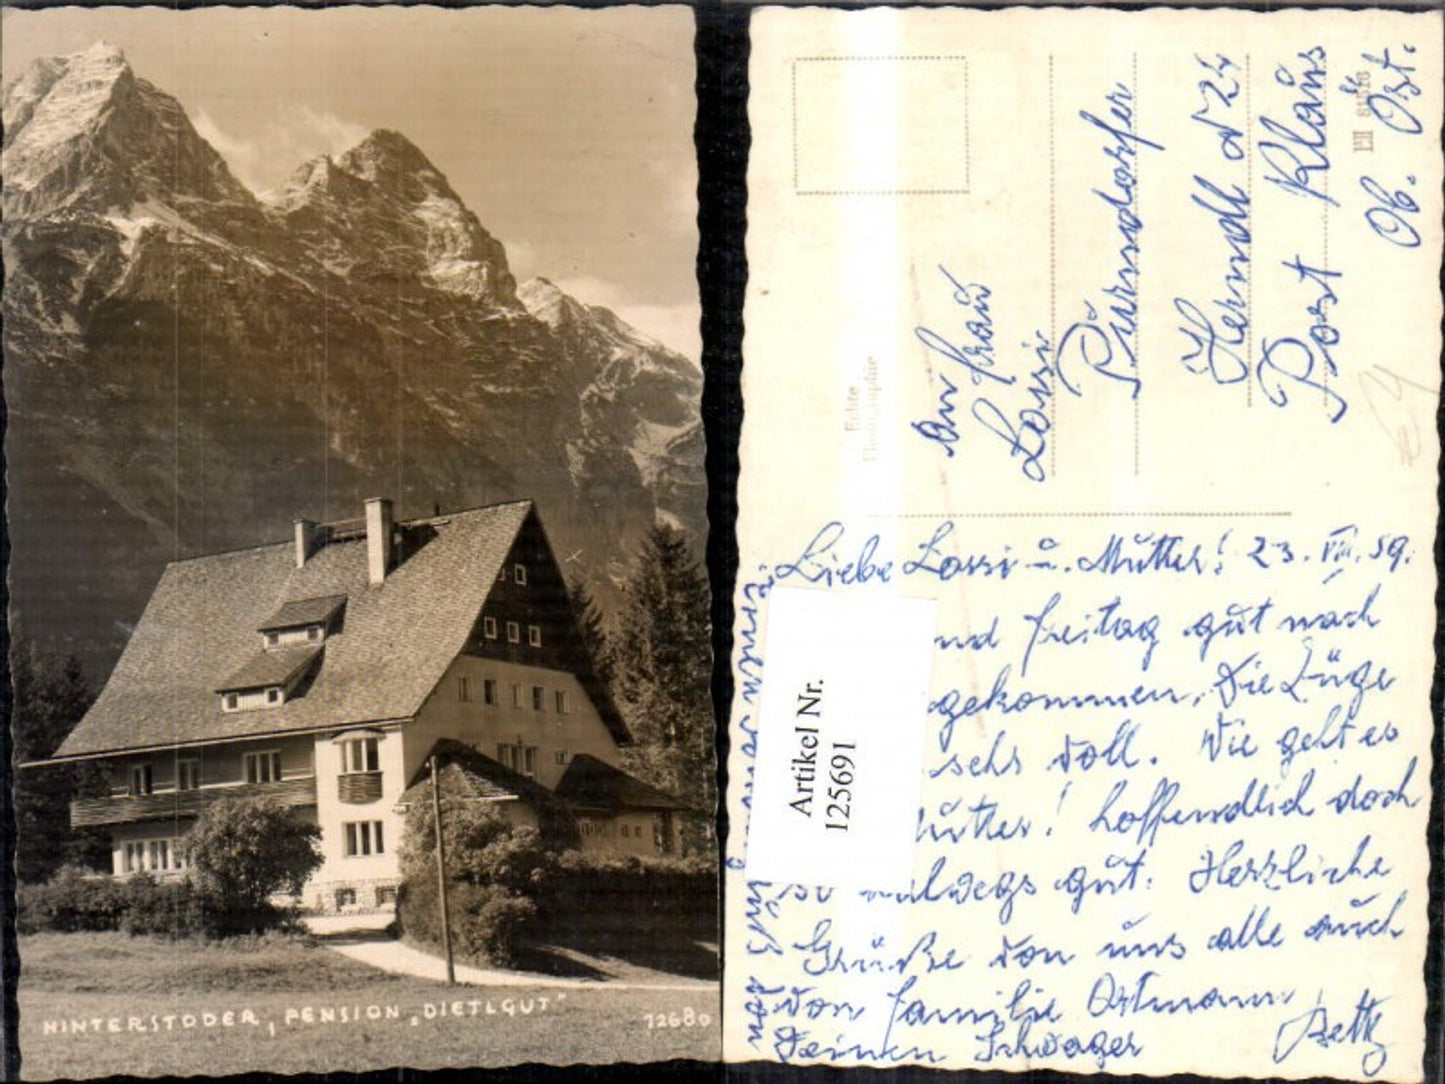 HINTERSTODER, PENSION „DIETLGUT"
72680
Echte
Photographie
An Frau
Lossi
Pürndorfer
Herndl N 24
Post Klaus
Ob. Öst.
€ 4
Liebe Lossi u. Mutter! 23. VIII. 59.
nd Freitag gut nach
gekommen, Die Züge
sehr voll. Wie geht es
Mutter! hoffendlich doch
so halwegs gut. Herzliche
Grüße von uns alle auch
von Familie Ortmann
Deinen Schwager
Artikel Nr.
125691